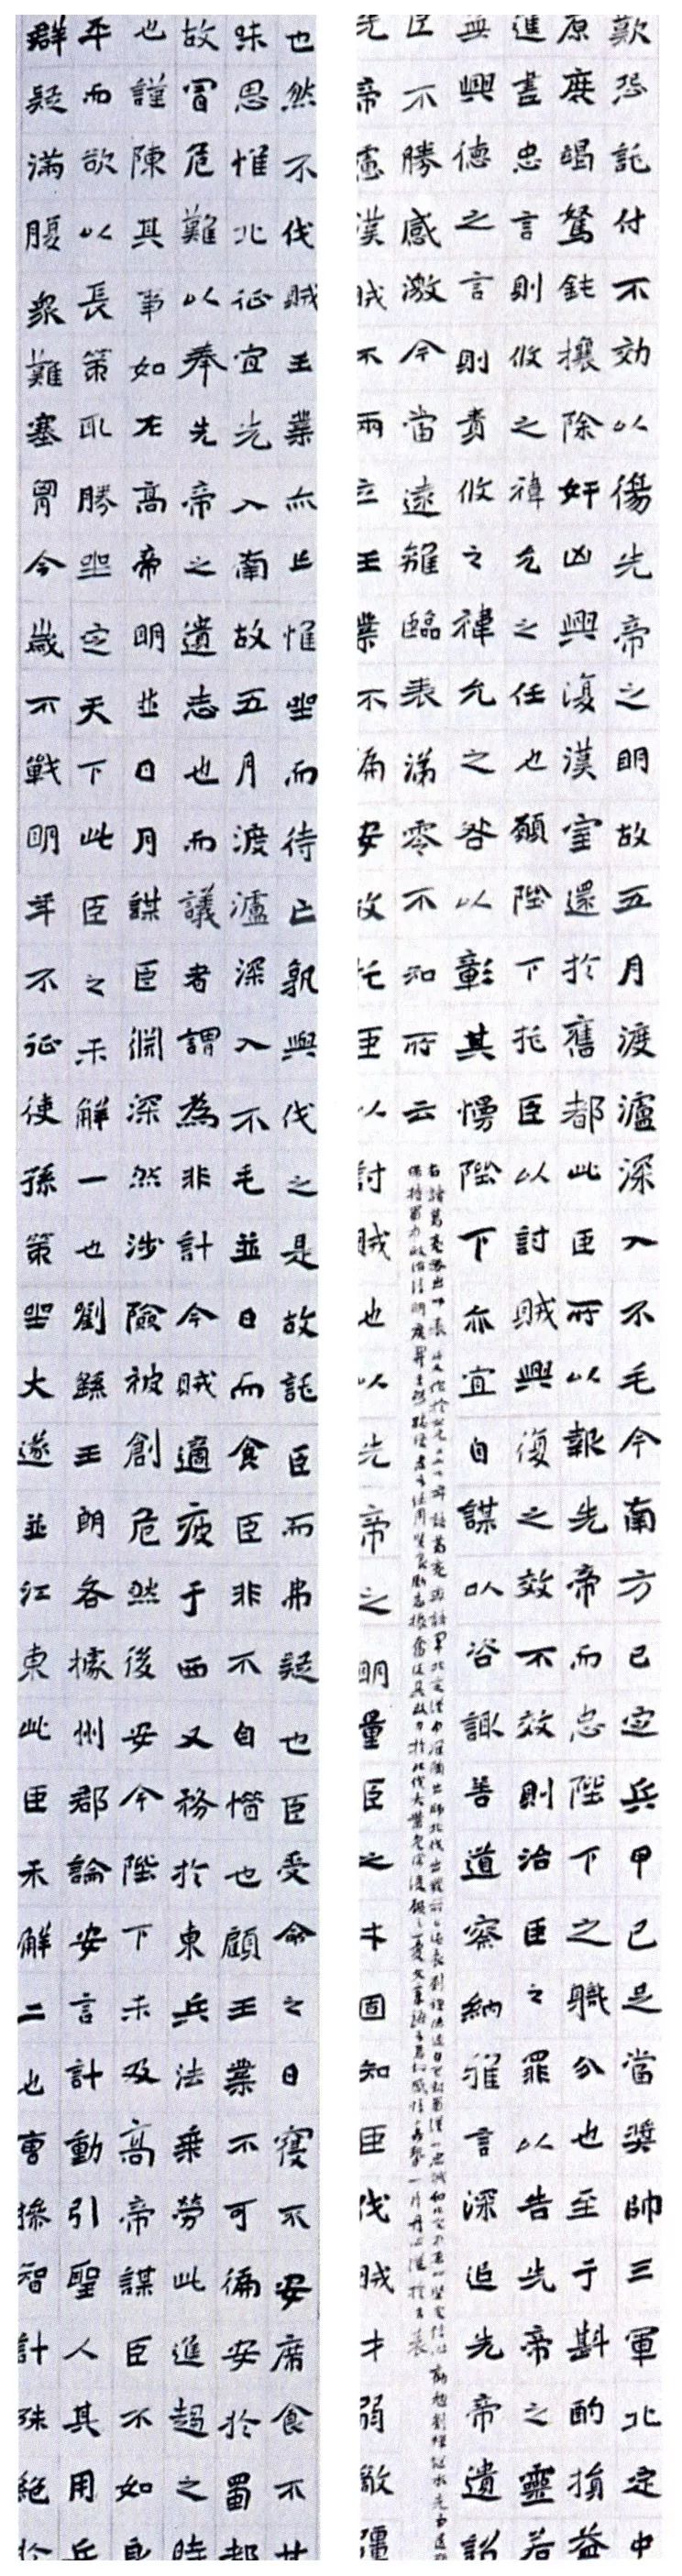 歎恐託付不効以傷先帝之明故五月渡瀘深入不毛今南方已定兵甲已足當奬帥三軍北定中
原庶竭駑鈍攘除奸凶興復漢室還於舊都此臣所以報先帝而忠陛下之職分也至于斟酌損益
進盡忠言則攸之禕允之任也願陛下托臣以討賊興復之效不效則治臣之罪以告先帝之靈若
無興德之言則責攸之禕允之咎以彰其慢陛下亦宜自謀以咨諏善道察納雅言深追先帝遺詔
臣不勝感激今當遠離臨表涕零不知所云
先帝慮漢賊不兩立王業不偏安故托臣以討賊也以先帝之明量臣之才固知臣伐賊才弱敵彊
也然不伐賊王業亦亡惟坐而待亡孰與伐之是故託臣而弗疑也臣受命之日寢不安席食不甘
味思惟北征宜先入南故五月渡瀘深入不毛並日而食臣非不自惜也顧王業不可偏安於蜀都
故冒危難以奉先帝之遺志也而議者謂為非計今賊適疲于西又務於東兵法乘勞此進趨之時
也謹陳其事如左高帝明並日月謀臣淵深然涉險被創危然後安今陛下未及高帝謀臣不如良
平而欲以長策取勝坐定天下此臣之未解一也劉繇王朗各據州郡論安言計動引聖人其用兵
群疑滿腹衆難塞胷今歲不戰明年不征使孫策坐大遂並江東此臣未解二也曹操智計殊絕於